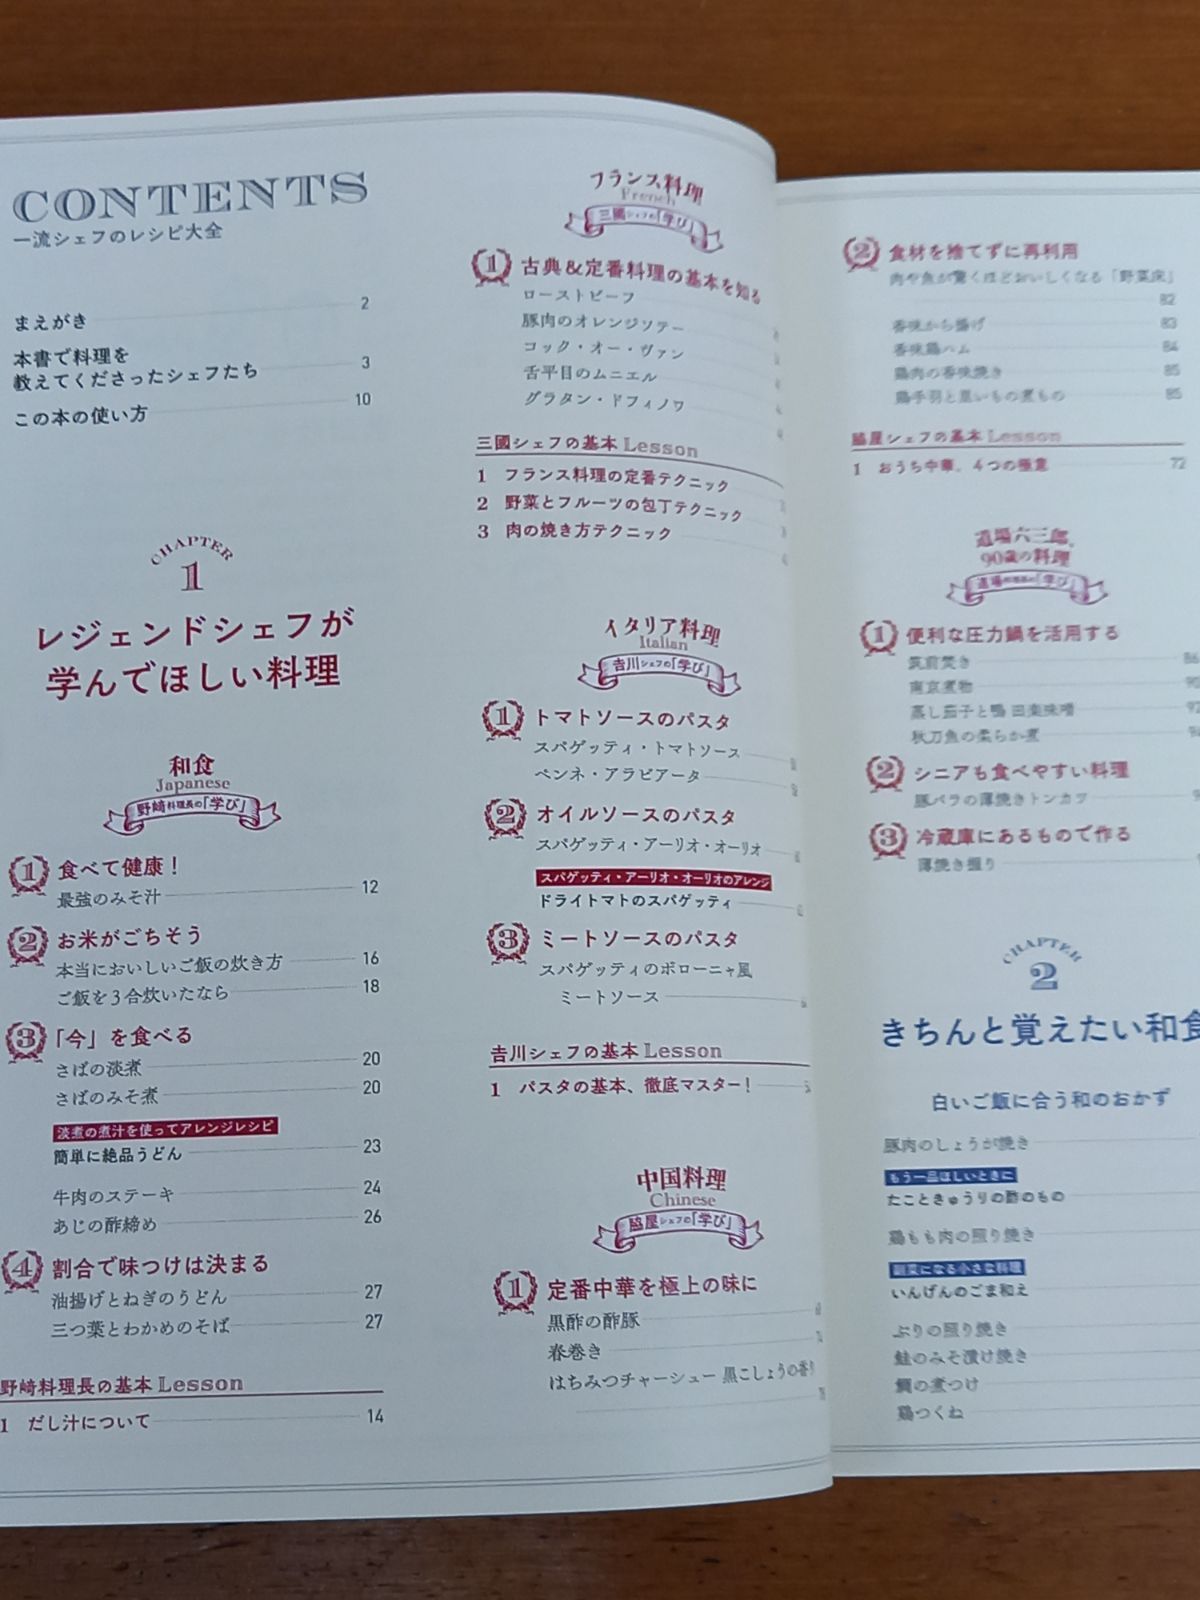 CONTENTS
一流シェフのレシピ大全
まえがき 2
本書で料理を
教えてくださったシェフたち 3
この本の使い方 10
CHAPTER
1
レジェンドシェフが
学んでほしい料理
和食
Japanese
野﨑料理長の「学び」
1 食べて健康！
最強のみそ汁 12
2 お米がごちそう
本当においしいご飯の炊き方 16
ご飯を3合炊いたなら 18
3 「今」を食べる
さばの淡煮 20
さばのみそ煮 20
淡煮の煮汁を使ってアレンジレシピ
簡単に絶品うどん 23
牛肉のステーキ 24
あじの酢締め 26
4 割合で味つけは決まる
油揚げとねぎのうどん 27
三つ葉とわかめのそば 27
野﨑料理長の基本 Lesson
1 だし汁について 14
フランス料理
French
三國シェフの「学び」
1 古典＆定番料理の基本を知る
ローストビーフ
豚肉のオレンジソテー
コック・オー・ヴァン
舌平目のムニエル
グラタン・ドフィノワ
三國シェフの基本 Lesson
1 フランス料理の定番テクニック
2 野菜とフルーツの包丁テクニック
3 肉の焼き方テクニック
イタリア料理
Italian
𠮷川シェフの「学び」
1 トマトソースのパスタ
スパゲッティ・トマトソース
ペンネ・アラビアータ
2 オイルソースのパスタ
スパゲッティ・アーリオ・オーリオ
スパゲッティ・アーリオ・オーリオのアレンジ
ドライトマトのスパゲッティ
3 ミートソースのパスタ
スパゲッティのボローニャ風
ミートソース
𠮷川シェフの基本 Lesson
1 パスタの基本、徹底マスター！
中国料理
Chinese
脇屋シェフの「学び」
1 定番中華を極上の味に
黒酢の酢豚
春巻き
はちみつチャーシュー 黒こしょうの香り
2 食材を捨てずに再利用
肉や魚が驚くほどおいしくなる「野菜床」
82
香味から揚げ 83
香味鶏ハム 84
鶏肉の香味焼き 85
鶏手羽と里いもの煮もの 85
脇屋シェフの基本 Lesson
1 おうち中華、4つの極意 72
道場六三郎、
90歳の料理
1 便利な圧力鍋を活用する
筑前焚き
南京煮物
蒸し茄子と鴨 田楽味噌
秋刀魚の柔らか煮
2 シニアも食べやすい料理
豚バラの薄焼きトンカツ
3 冷蔵庫にあるもので作る
薄焼き握り
CHAPTER
2
きちんと覚えたい和食
白いご飯に合う和のおかず
豚肉のしょうが焼き
もう一品ほしいときに
たこときゅうりの酢のもの
鶏もも肉の照り焼き
副菜になる小さな料理
いんげんのごま和え
ぶりの照り焼き
鮭のみそ漬け焼き
鯛の煮つけ
鶏つくね